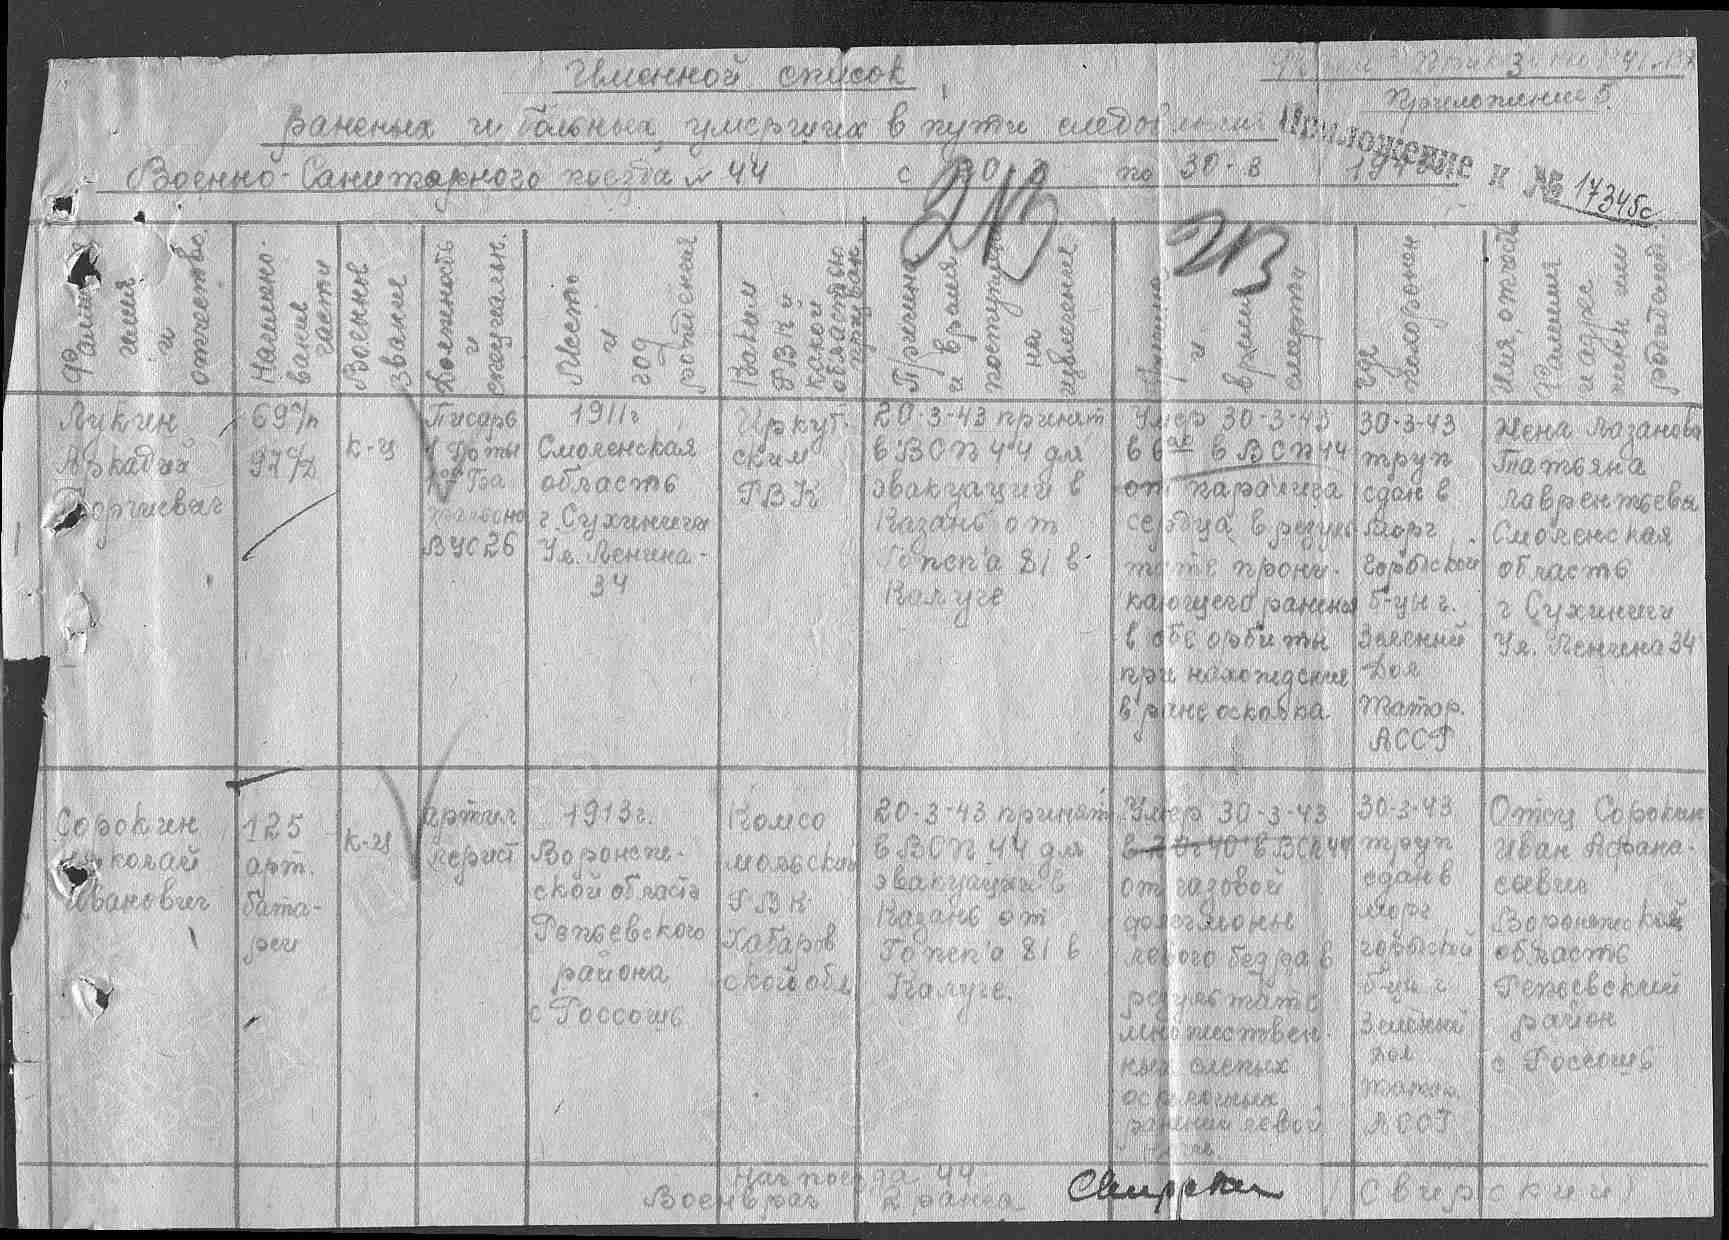 Именной список
Приложение 5.
раненых и больных умерших в пути следования
Приложение к № 17345с
Военно-Санитарного поезда № 44 с по 30-3
Фамилия и отчество.
Наименование части
Военное звание
Должность и специальн.
Место и год рождения
Каким РВК и какой областью призван
Причина и время поступления на излечение
и время смерти
Где похоронен
Имя, отчество Фамилия и адрес жены или родителей.
1
Лукин
Аркадий
Георгиевич
69 п/п
97 с/д
к-ц
Писарь
роты
ВУС 26
1911г
Смоленская
область
г. Сухиничи
Ул. Ленина-
34
Иркут-
ским
РВК
20-3-43 принят
в ВСП 44 для
эвакуации в
Казань от
Гопеп'а 81 в
Калуге
Умер 30-3-43
в ВСП 44
от паралича
сердца в резуль
тате прони-
кающего ранения
в обе орбиты
при нахождение
в ране осколка.
30-3-43
труп
сдан в
морг
городской
б-цы г.
Зеленый
Дол
Татар.
АССР
Жена Лазанова
Татьяна
Лаврентьевна
Смоленская
область
г Сухиничи
Ул. Ленина 34
Сорокин
Николай
Иванович
125
арт.
бата-
реи
к-ц
артил
лерист
1913г.
Воронеж-
ской область
Репьевского
района
с Россошь
Комсо
мольский
РВК
Хабаров
ской обл
20-3-43 принят
в ВСП 44 для
эвакуации в
Казань от
Гопеп'а 81 в
Калуге.
Умер 30-3-43
в ВСП 44
от газовой
флегмоны
левого бедра в
результате
множествен-
ных слепых
осколочных
ранений левой
30-3-43
труп
сдан в
морг
городской
б-цы г
Зеленый
Дол
Татар.
АССР
Отец Сорокин
Иван Афана-
сьевич
Воронежской
область
Репьевский
район
с Россошь
Нач поезда 44
Военврач 2 ранга Свирский /Свирский/